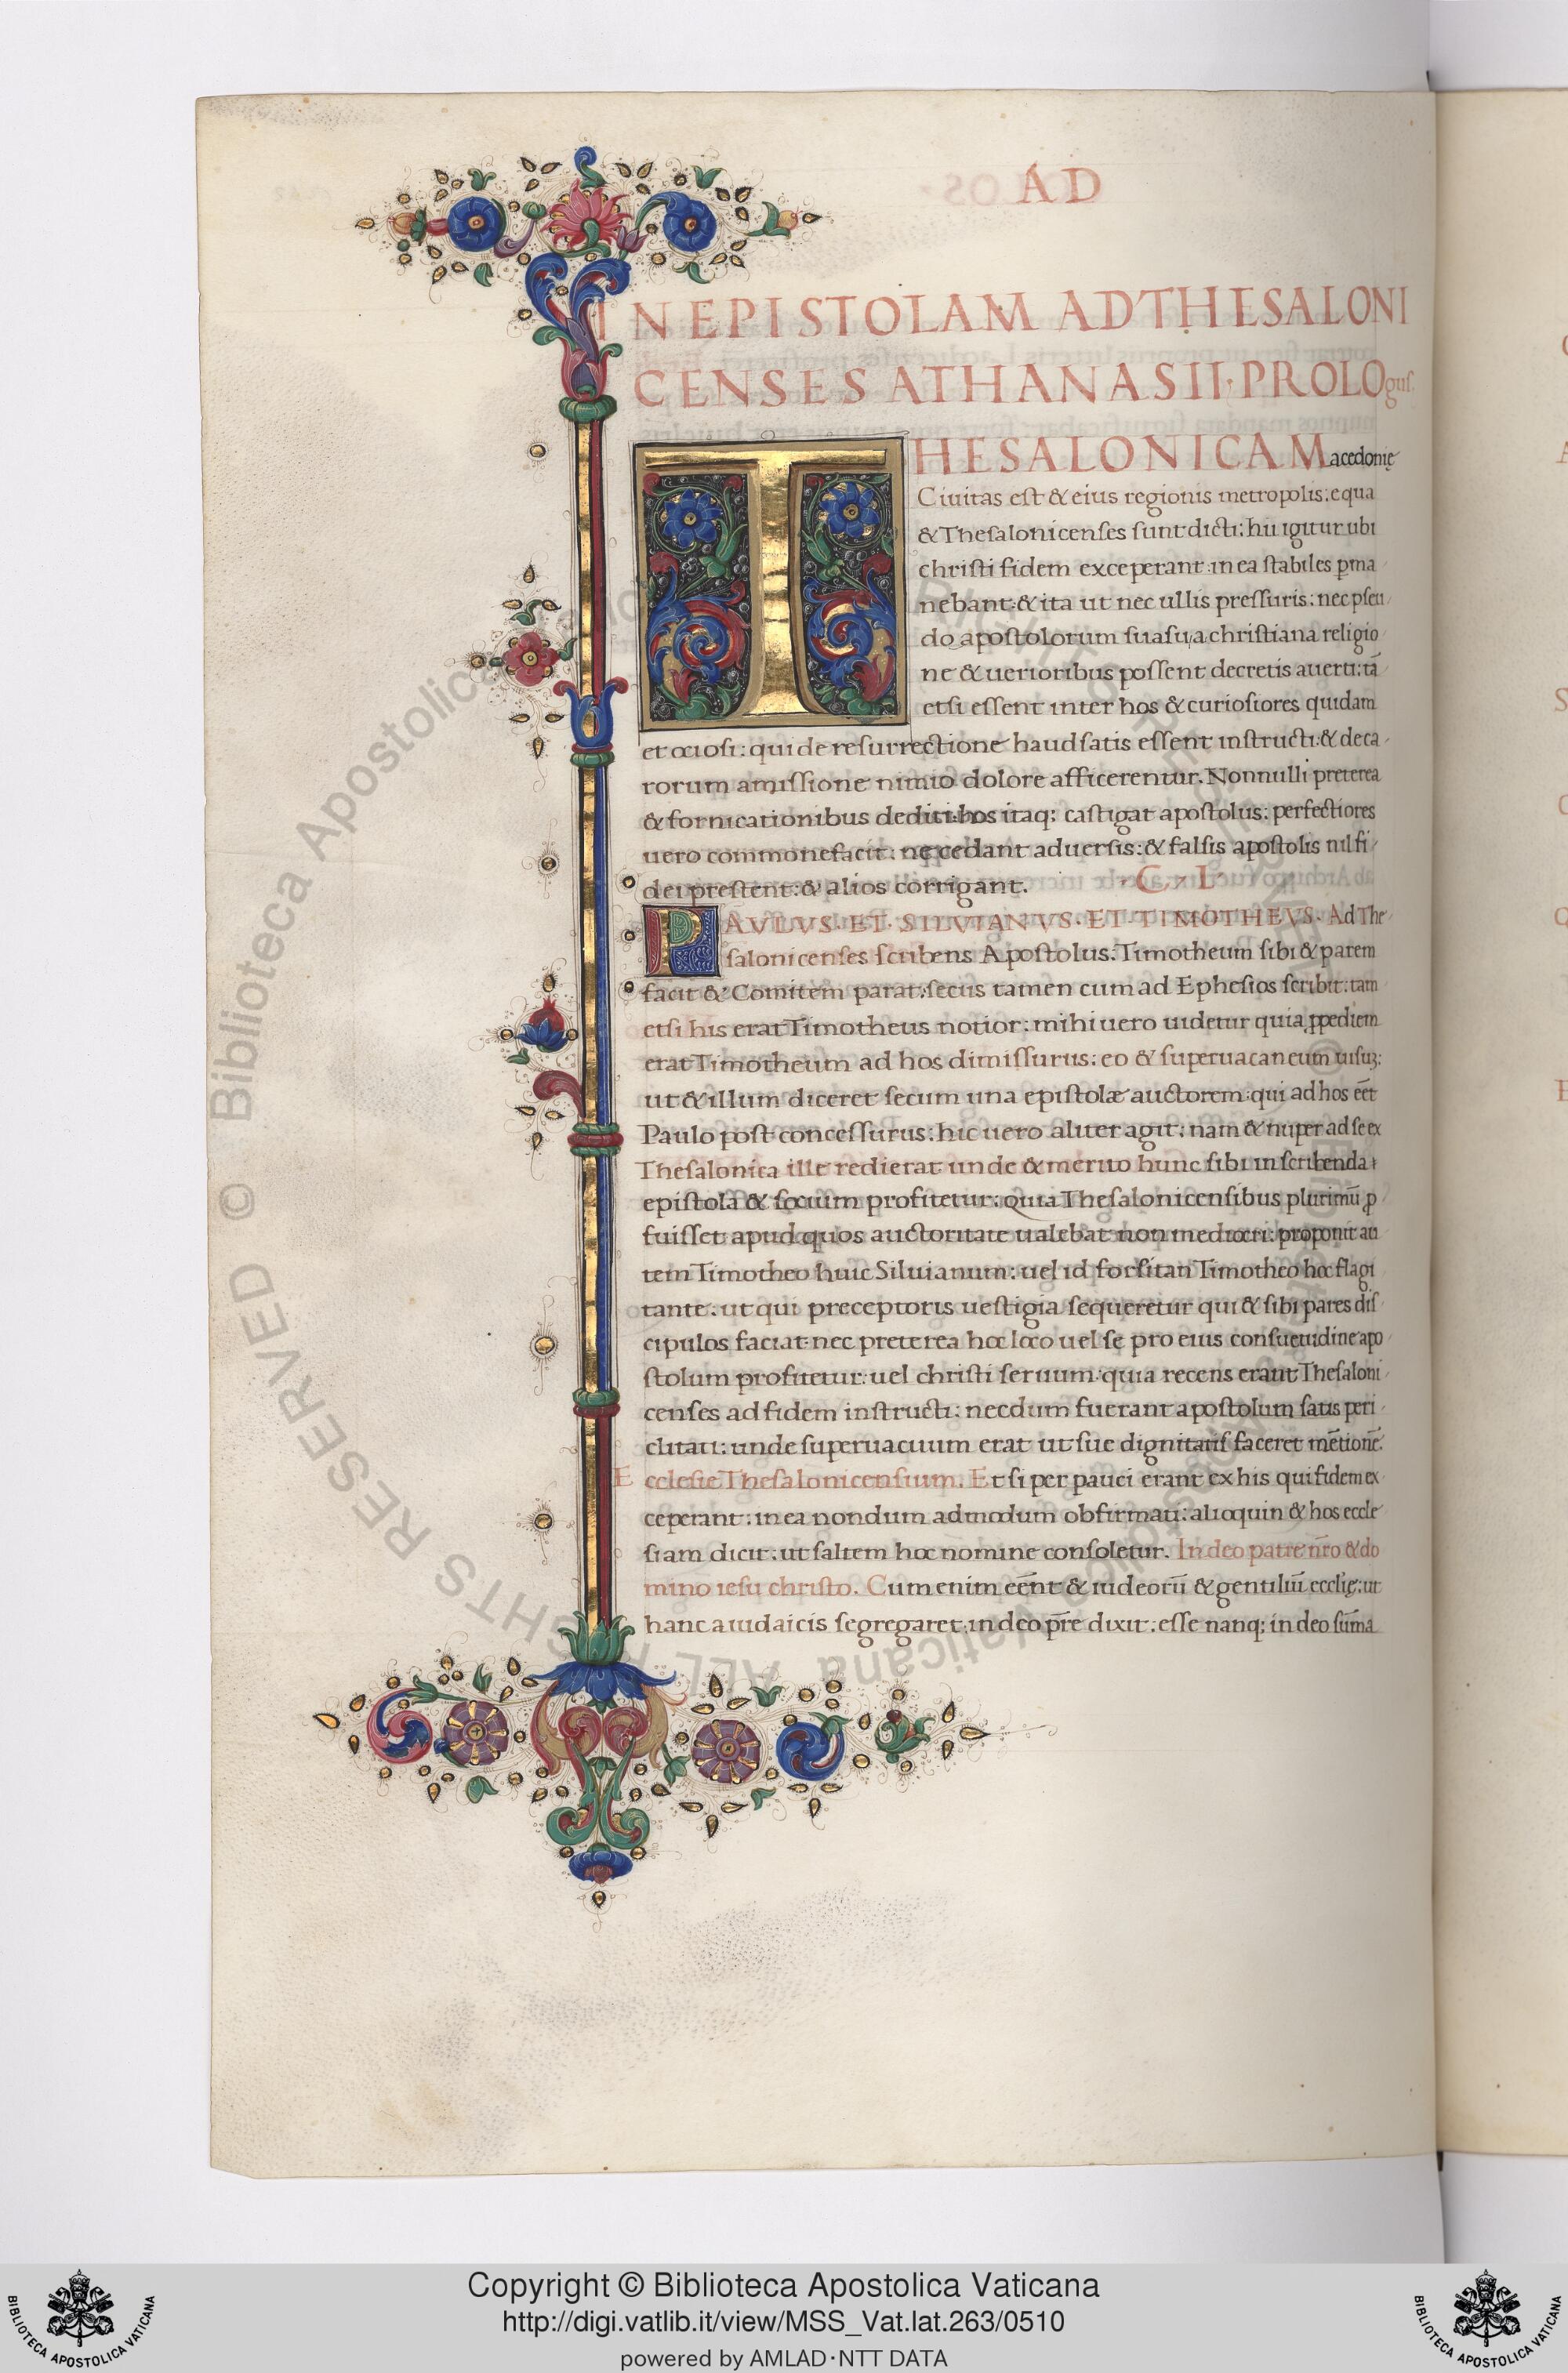 AD
IN EPISTOLAM AD THESALONI
CENSES ATHANASII·PROLOgus
THESALONICAM acedonię
Ciuitas est & eius regionis metropolis: e qua
& Thesalonicenses sunt dicti: hii igitur ubi
christi fidem exceperant: in ea stabiles pma
nebant: & ita ut nec ullis pressuris: nec pseu
do apostolorum suasu, a christiana religio
ne & uerioribus possent decretis auerti: tā
etsi essent inter hos & curiosiores quidam
et ociosi: qui de resurrectione haud satis essent instructi: & de ca
rorum amissione nimio dolore afficerentur. Nonnulli preterea
& fornicationibus dediti: hos itaq; castigat apostolus: perfectiores
uero commonefacit: ne cedant aduersis: & falsis apostolis nil fi
dei prestent: & alios corrigant. ·C·L·
PAVLVS·ET·SILVIANVS·ET·TIMOTHEVS· Ad The
salonicenses scribens Apostolus: Timotheum sibi & parem
facit & Comitem parat: secus tamen cum ad Ephesios scribit: tam
etsi his erat Timotheus notior: mihi uero uidetur quia ꝓpediem
erat Timotheum ad hos dimissurus: eo & superuacaneum uisuꝫ:
ut & illum diceret secum una epistolæ auctorem: qui ad hos eēt
Paulo post concessurus: hic uero aliter agit: nam & nuper ad se ex
Thesalonica ille redierat unde & merito hunc sibi in scribenda
epistola & socium profitetur: quia Thesalonicensibus plurimū ꝓ
fuisset apud quos auctoritate ualebat non mediocri: proponit au
tem Timotheo huic Siluianum: uel id forsitan Timotheo hoc flagi
tante: ut qui preceptoris uestigia sequeretur qui & sibi pares dis
cipulos faciat: nec preterea hoc loco uel se pro eius consuetudine apo
stolum profitetur: uel christi seruum: quia recens erant Thesaloni
censes ad fidem instructi: necdum fuerant apostolum satis peri
clitati: unde superuacuum erat ut sue dignitatis faceret mētionē.
Ecclesie Thesalonicensium. Et si per pauci erant ex his qui fidem ex
ceperant: in ea nondum admodum obfirmati: alioquin & hos eccle
siam dicit: ut saltem hoc nomine consoletur. In deo patre nr̄o & do
mino iesu christo. Cum enim eēnt & iudeorū & gentiliū ecclię: ut
hanc a iudaicis segregaret: in deo pr̄e dixit: esse nanq; in deo sūma
© Biblioteca Apostolica Vaticana ALL RIGHTS RESERVED
Copyright © Biblioteca Apostolica Vaticana
http://digi.vatlib.it/view/MSS_Vat.lat.263/0510
powered by AMLAD·NTT DATA
BIBLIOTECA APOSTOLICA VATICANA
BIBLIOTECA APOSTOLICA VATICANA